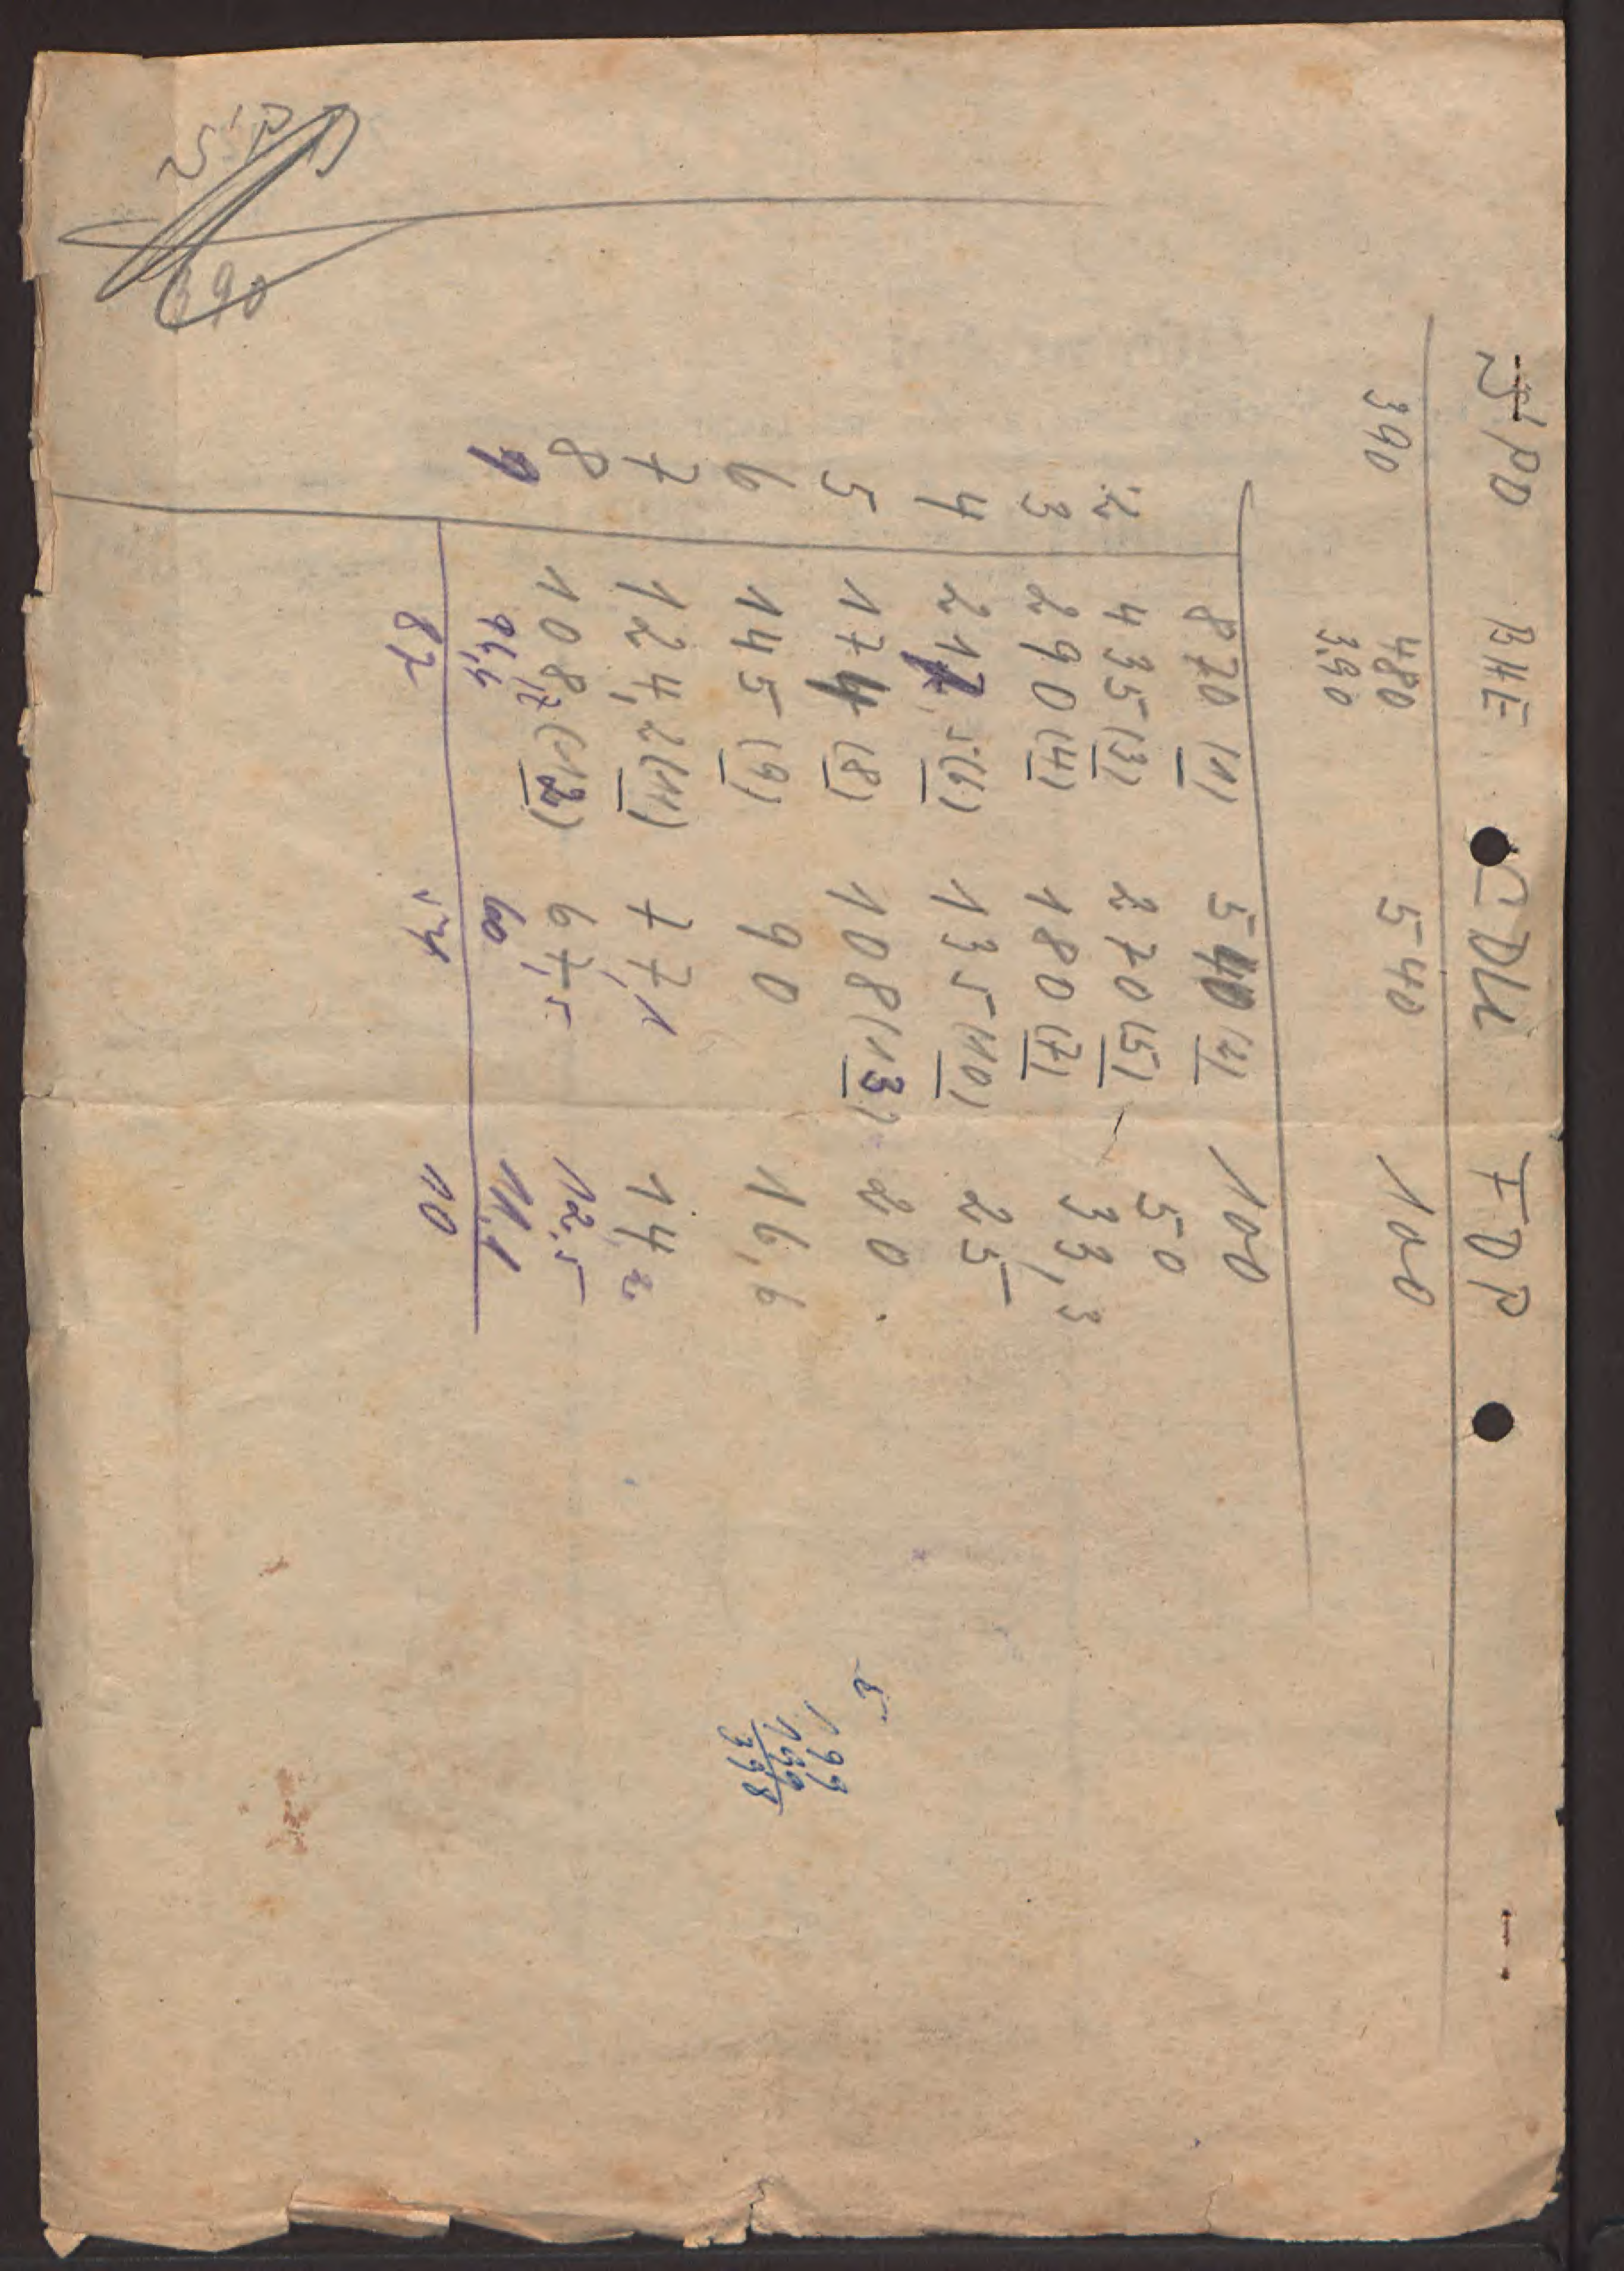 SPD BHE CDU FDP
390 480 540 100
390
870 (1) 540 (2) 100
2 435 (3) 270 (5) 50
3 290 (4) 180 (7) 33,3
4 217,5 (6) 135 (10) 25
5 174 (8) 108 (13) 20
6 145 (9) 90 16,6
7 124,2 (11) 77,1 14,2
8 108,7 (12) 67,5 12,5
9 96,6 60 11,1
87 54 10
199
199
398
390